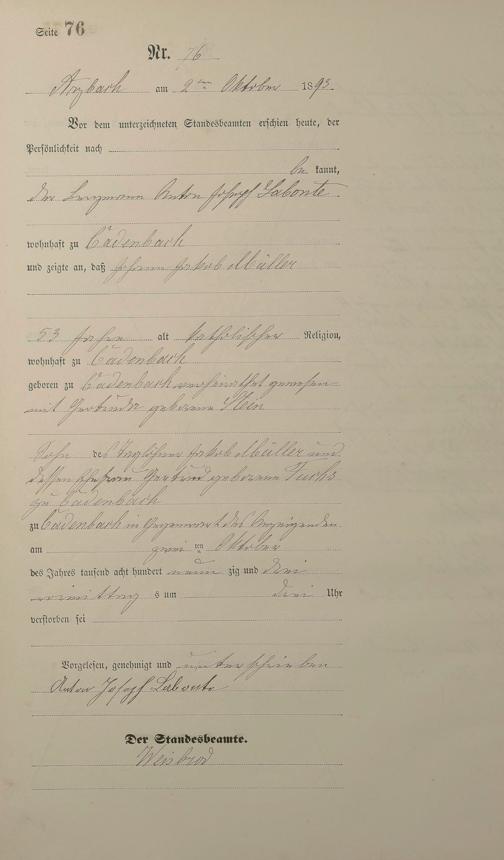 Seite 76
Nr. 76
Arzbach am 2ten Oktober 1893.
Vor dem unterzeichneten Standesbeamten erschien heute, der
Persönlichkeit nach
be kannt,
der Bergmann Anton Joseph Labonte
wohnhaft zu Cadenbach
und zeigte an, daß Johann Jakob Müller
53 Jahre alt katholischer Religion,
wohnhaft zu Cadenbach
geboren zu Cadenbach verheirathet gewesen
mit Gertrude geborene
Sohn des Taglöhner Jakob Müller und
dessen Ehefrau Gertrud geborene Fuchs
zu Cadenbach
zu Cadenbach in Gegenwart des Anzeigenden
am zwei ten Oktober
des Jahres tausend acht hundert neun zig und drei
vormittag s um drei Uhr
verstorben sei
Vorgelesen, genehmigt und unterschrieben
Anton Joseph Labonte
Der Standesbeamte.
Weisbrod